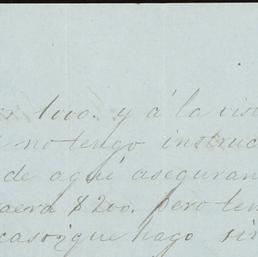 1000. y á la vis
no tengo instruc
de aquí aseguran
$200. pero ten
que hago sin